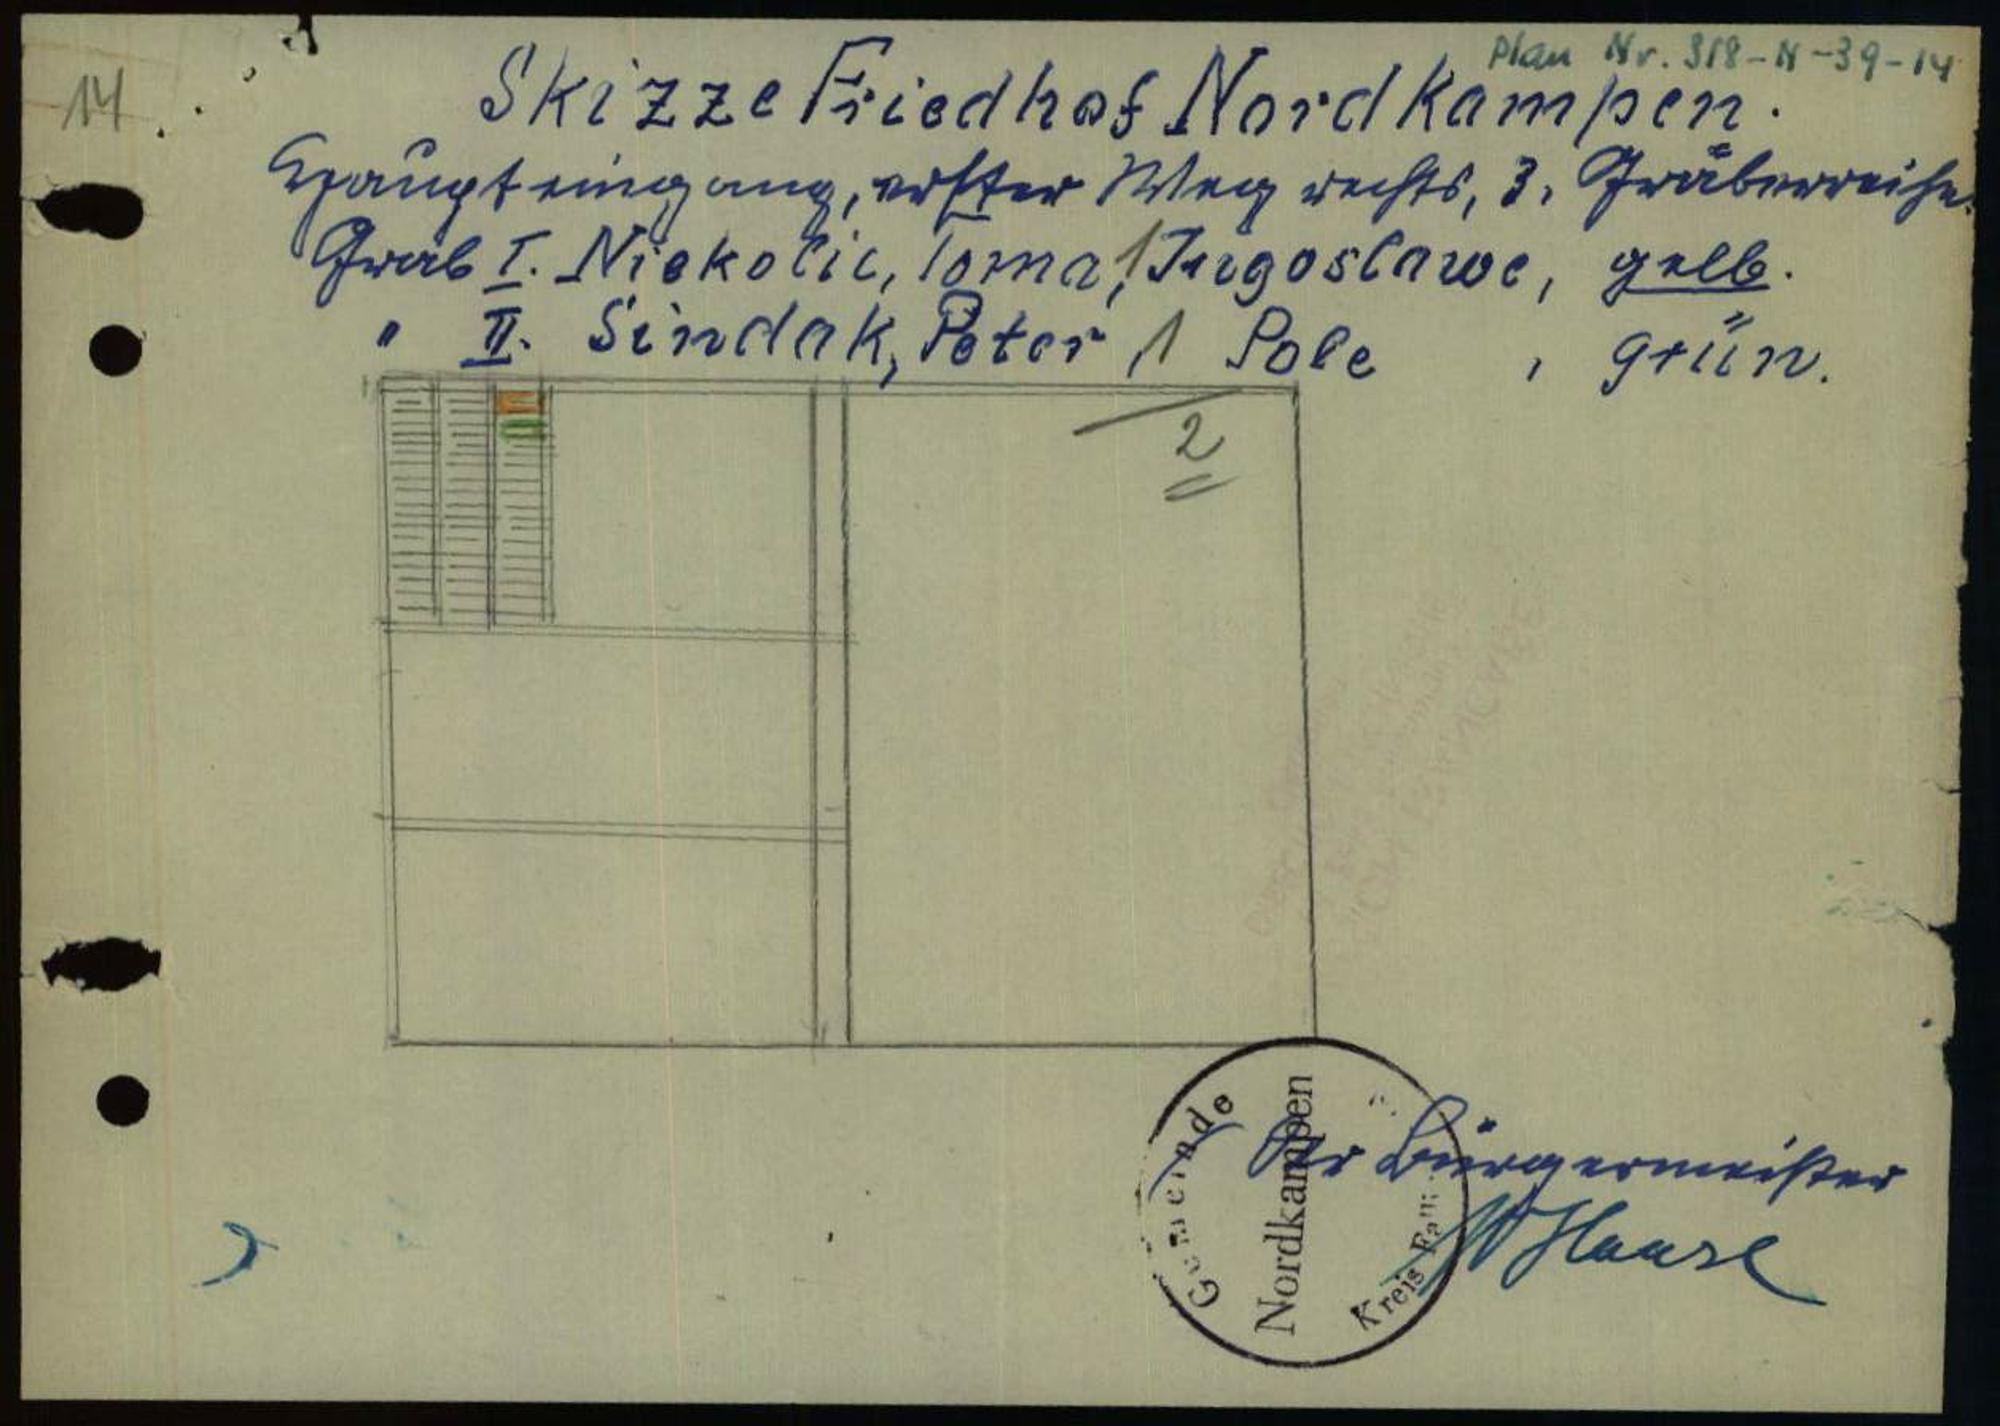 Plan Nr. 318-N-39-14
14
Skizze Friedhof Nordkampen.
Haupteingang, erster Weg rechts, 3. Gräberreihe.
Grab I. Niekolic, Toma, 1 Jugoslawe, gelb.
" II. Sindak, Peter, 1 Pole , grün.
2
Gemeinde
Nordkampen
Kreis
Der Bürgermeister
Haase